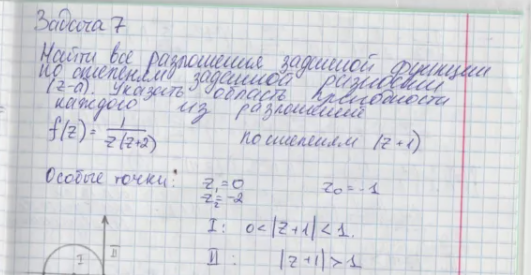 Задача 7
Найти все разложения заданной функции
по степеням заданной разности
(z-a). Указать область пригодности
каждого из разложений
f(z) = 1/z(z+2) по степеням (z+1)
Особые точки: z₁=0 z₀=-1
z₂=-2
I: 0<|z+1|<1.
II: |z+1|>1
I II